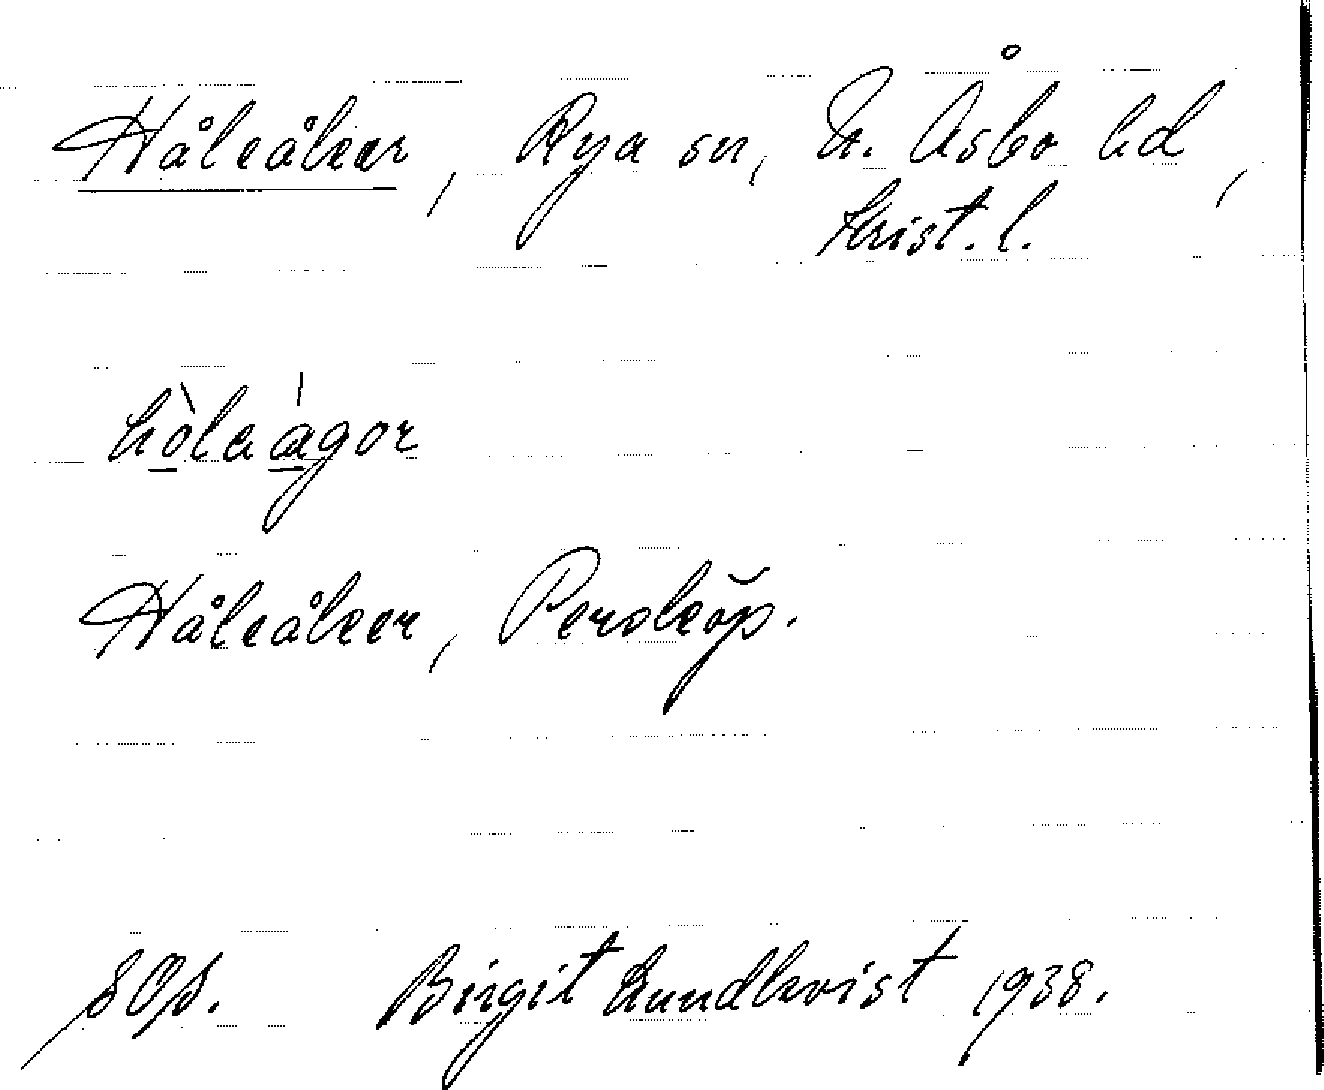 Håleåker, Rya sn, N. Åsbo hd,
Krist. l.
hòleágor
Håleåker, Persköp.
Birgit Lundkvist 1938.